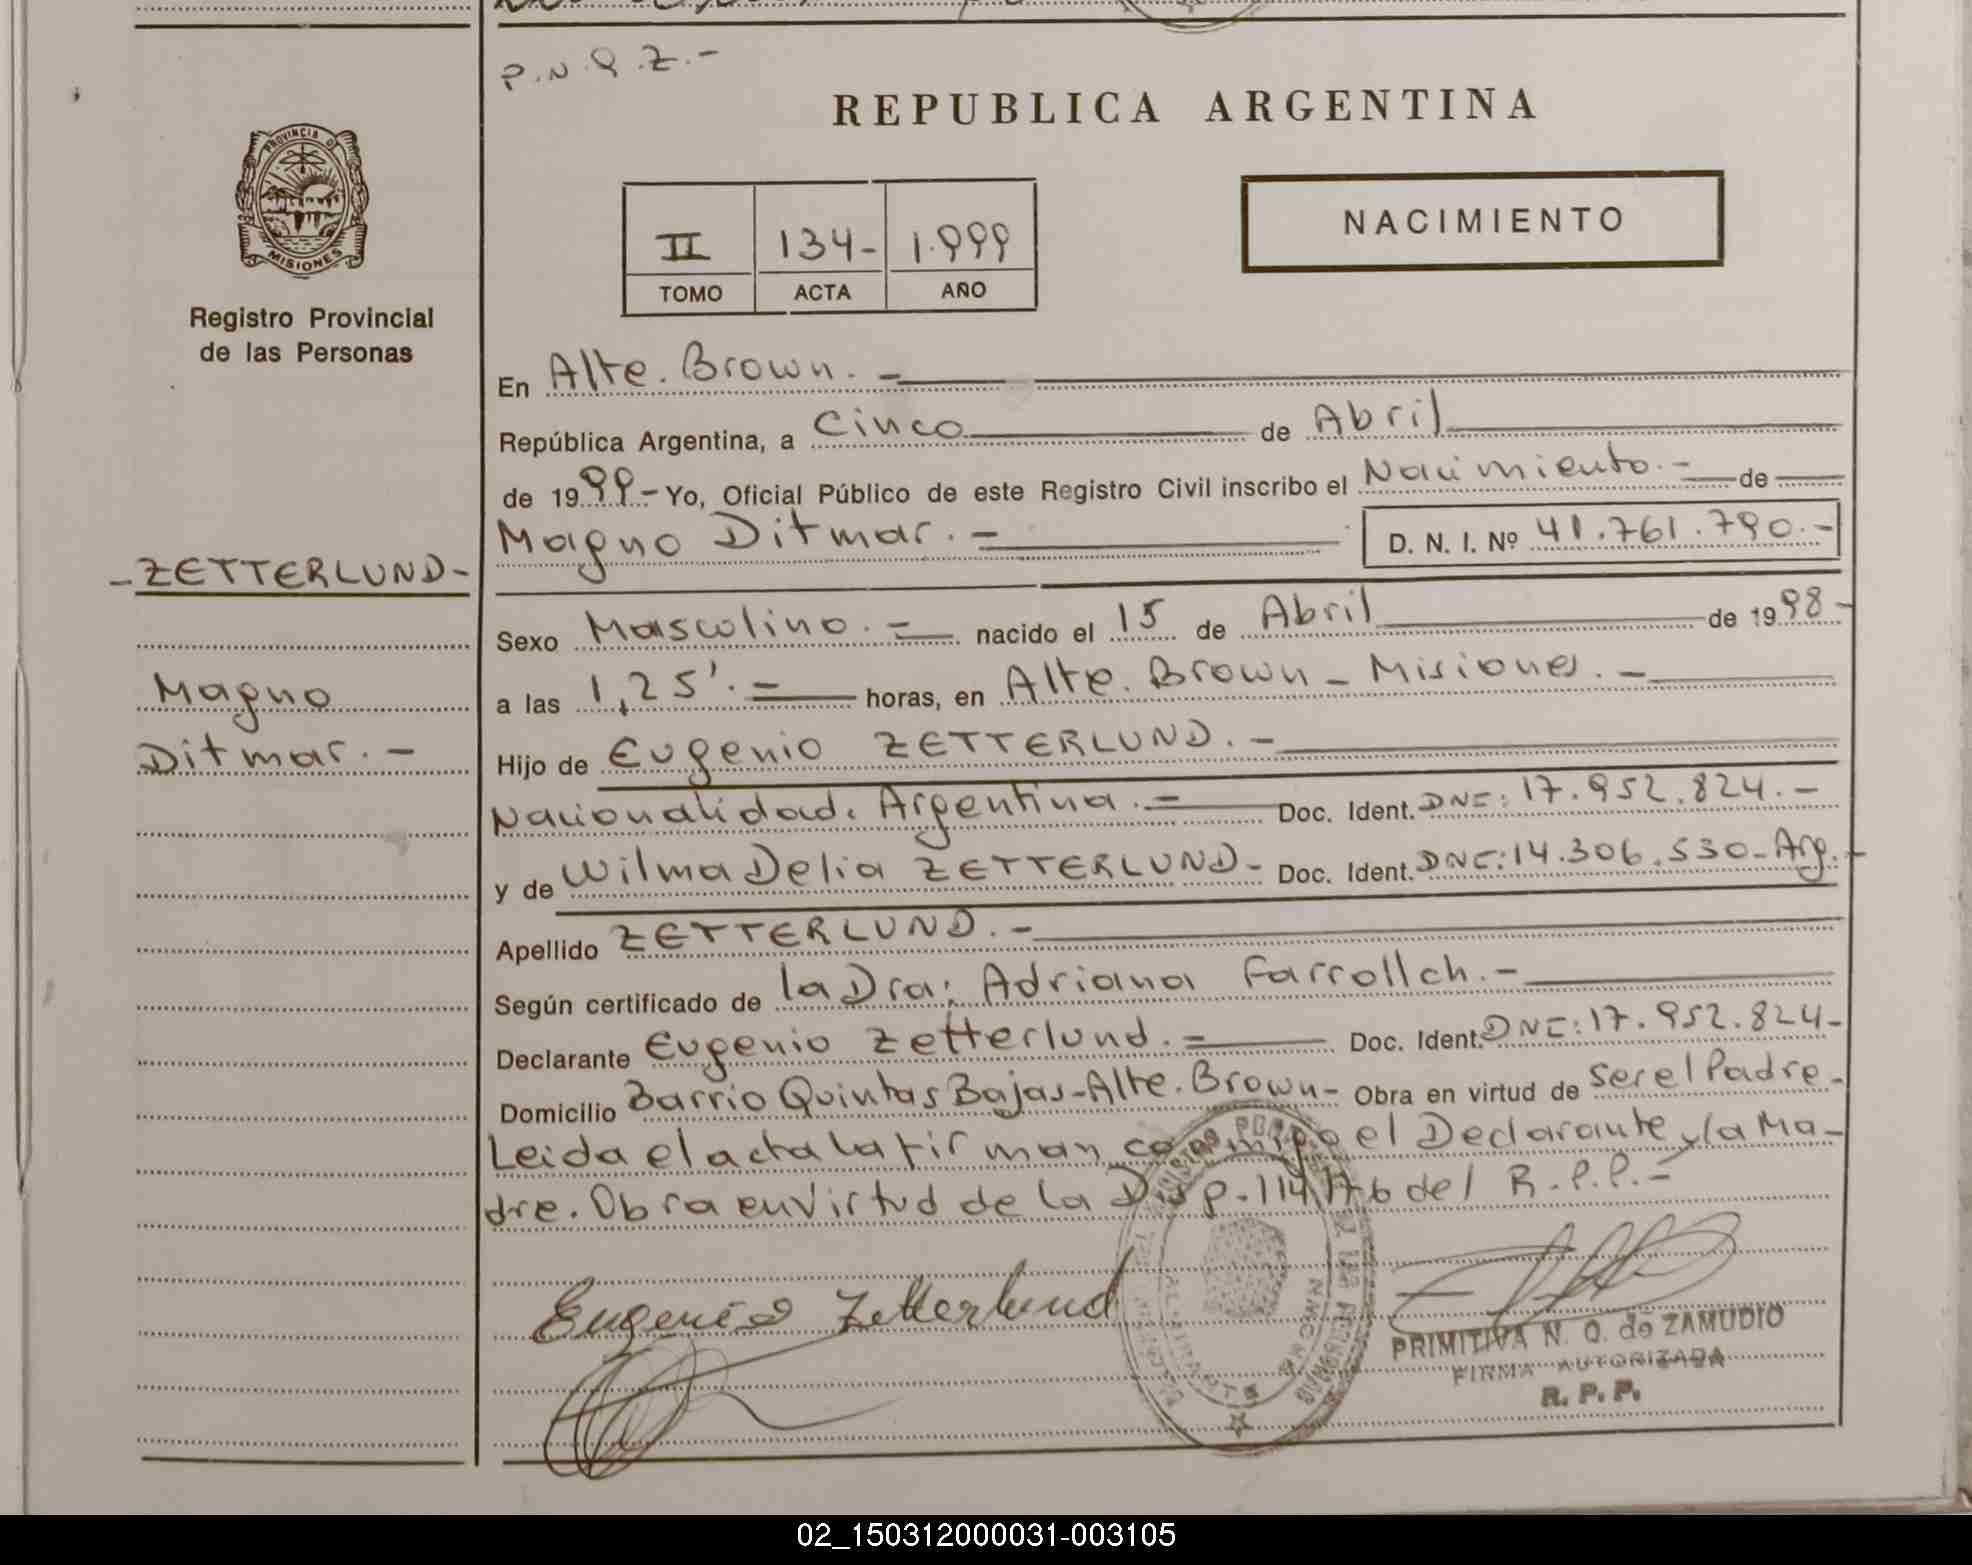 P.N.Q.Z.-
REPUBLICA ARGENTINA
PROVINCIA D
MISIONES
Registro Provincial
de las Personas
II 134- 1.999
TOMO ACTA AÑO
NACIMIENTO
En Alte. Brown. -
República Argentina, a Cinco de Abril
de 1999- Yo, Oficial Público de este Registro Civil inscribo el Nacimiento.- de
Magno Ditmar. - D. N. I. Nº 41.761.790.-
-ZETTERLUND-
Magno
Ditmar. -
Sexo Masculino. - nacido el 15 de Abril de 1998-
a las 1,25'. - horas, en Alte. Brown - Misiones. -
Hijo de Eugenio ZETTERLUND. -
Nacionalidad. Argentina. - Doc. Ident. DNI: 17.952.824. -
y de Wilma Delia ZETTERLUND- Doc. Ident. DNI: 14.306.530- Arg. -
Apellido ZETTERLUND. -
Según certificado de la Dra: Adriana Farrollch. -
Declarante Eugenio Zetterlund. - Doc. Ident. DNI: 17.952.824-
Domicilio Barrio Quintas Bajas-Alte. Brown- Obra en virtud de ser el Padre-
Leida el acta la firman conmigo el Declarante y la Ma-
dre. Obra en virtud de la Disp. 114/76 del R.P.P. -
Eugenio Zetterlund
PRIMITIVA N. Q. de ZAMUDIO
FIRMA AUTORIZADA
R. P. P.
02_150312000031-003105